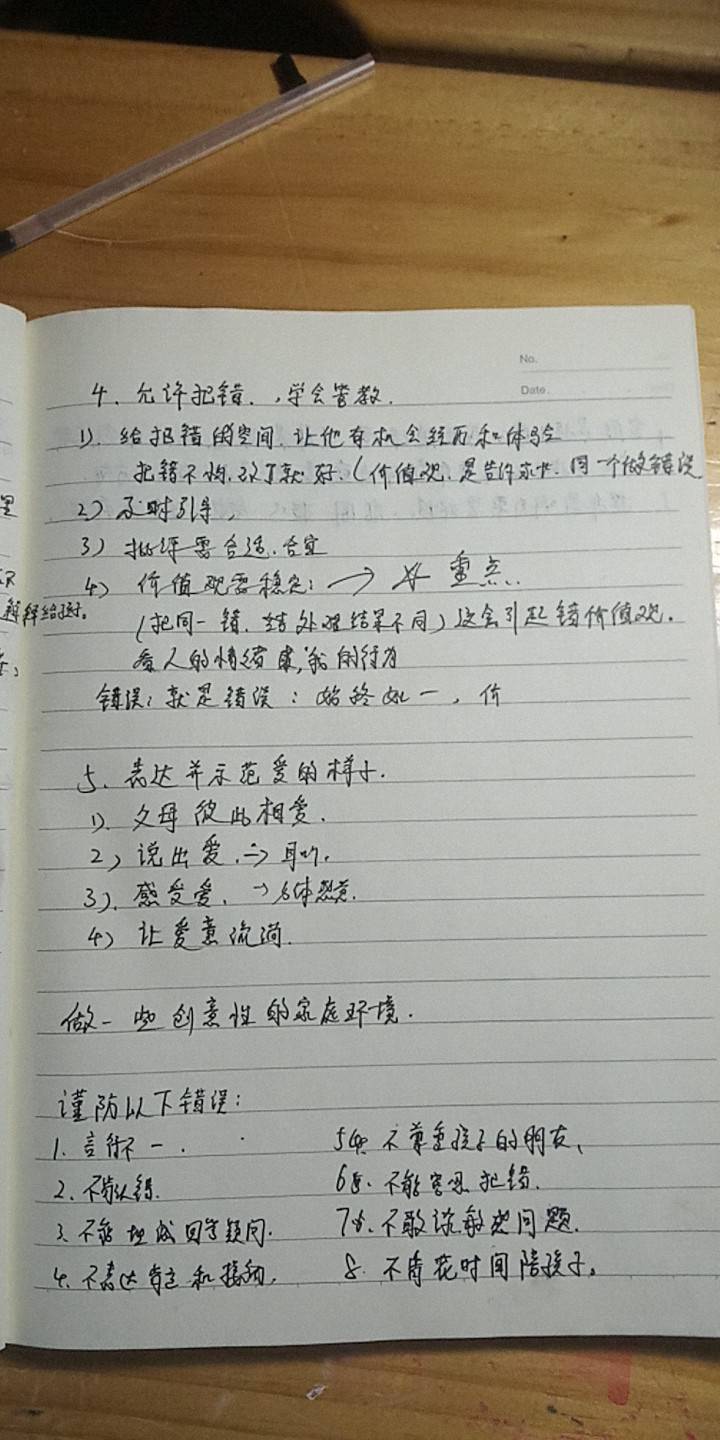 No.
Date.
4. 允许犯错.,学会管教.
1). 给犯错的空间.让他有机会经历和体验
犯错不怕.改了就好.(价值观.是告诉求
同一个做错误
2) 及时引导,
3) 批评要合适.合宜
4) 价值观要稳定: → 重点..
(犯同一错.处理结果不同)这会引起错价值观.
看人的情绪 的行为
错误:就是错误:始终如一,价
5. 表达并示范爱的样子.
1). 父母彼此相爱.
2) 说出爱.→ 耳听.
3). 感受爱.→
4) 让爱意流淌.
做一些创意性的家庭环境.
谨防以下错误:
1. 言行不一.
2. 不能认错.
3. 不能坦诚回答疑问.
4. 不表达肯定和接纳.
5 不尊重孩子的朋友、
6 不能容忍犯错.
7 不敢谈敏感问题.
8. 不肯花时间陪孩子。
解释给孩.